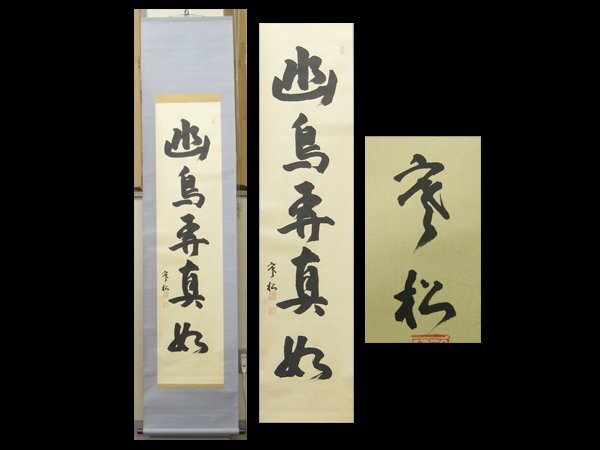 幽鳥弄真如
寒松
幽鳥弄真如
寒松
寒松